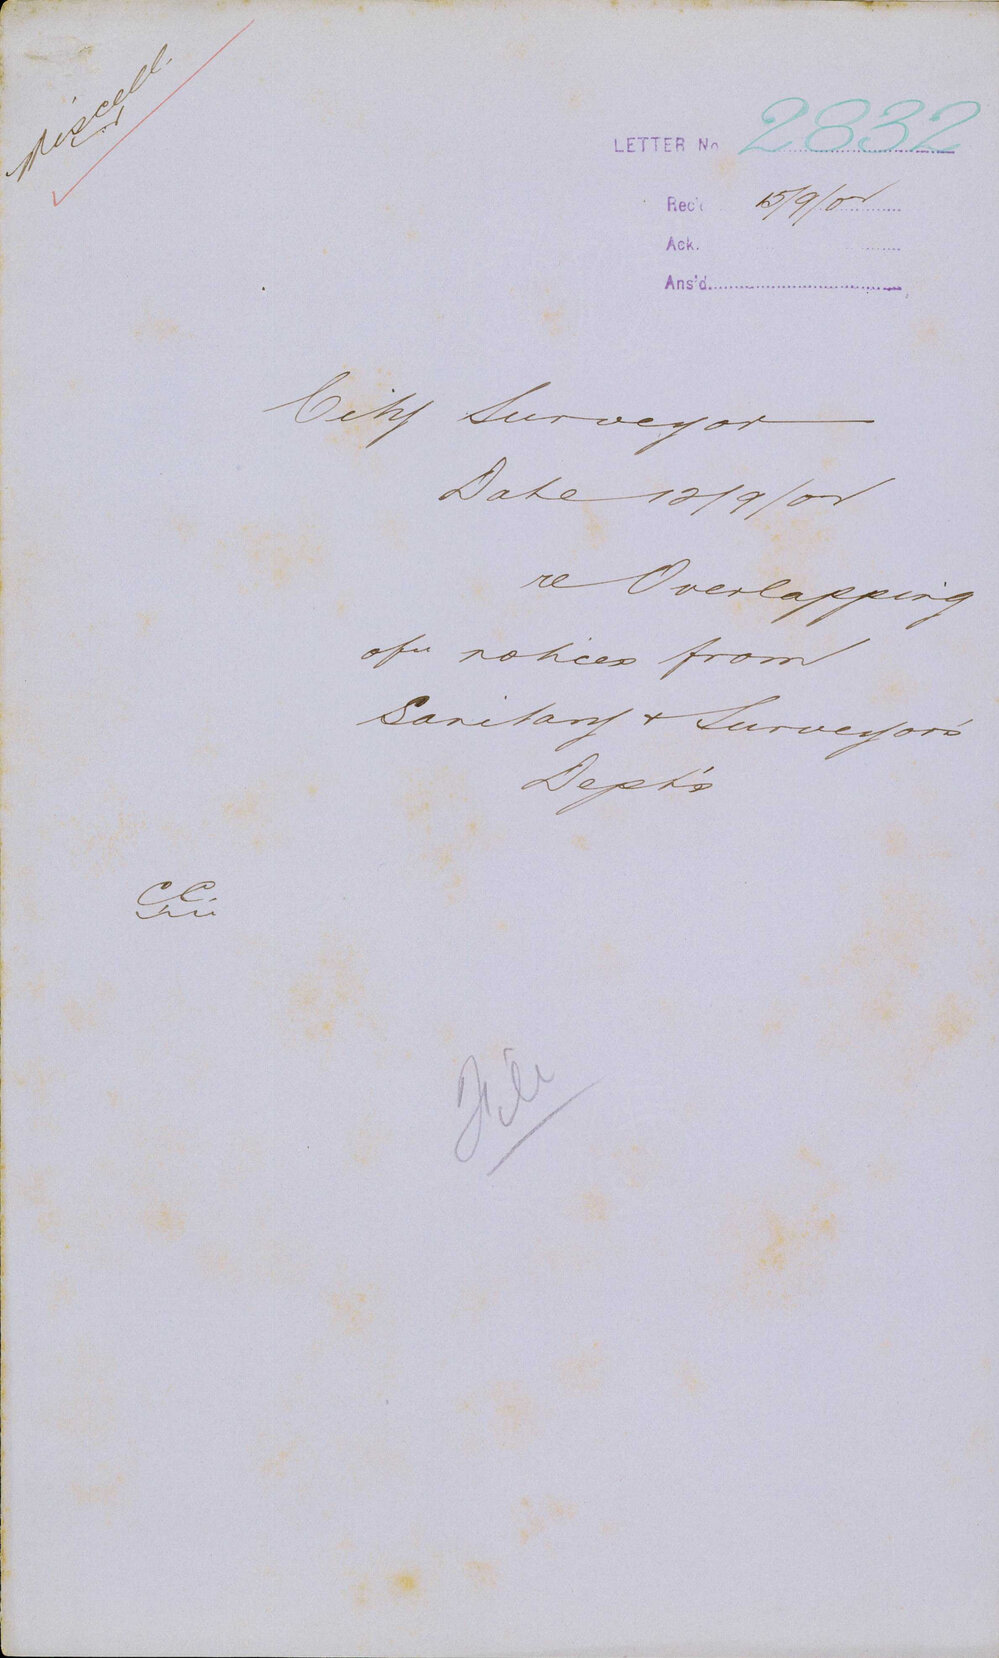 Miscell.
LETTER No 2832
Rec'd 15/9/02
Ack.
Ans'd.
City Surveyor
Date 12/9/02
re Overlapping
of notices from
Sanitary & Surveyor's
Dept's
File